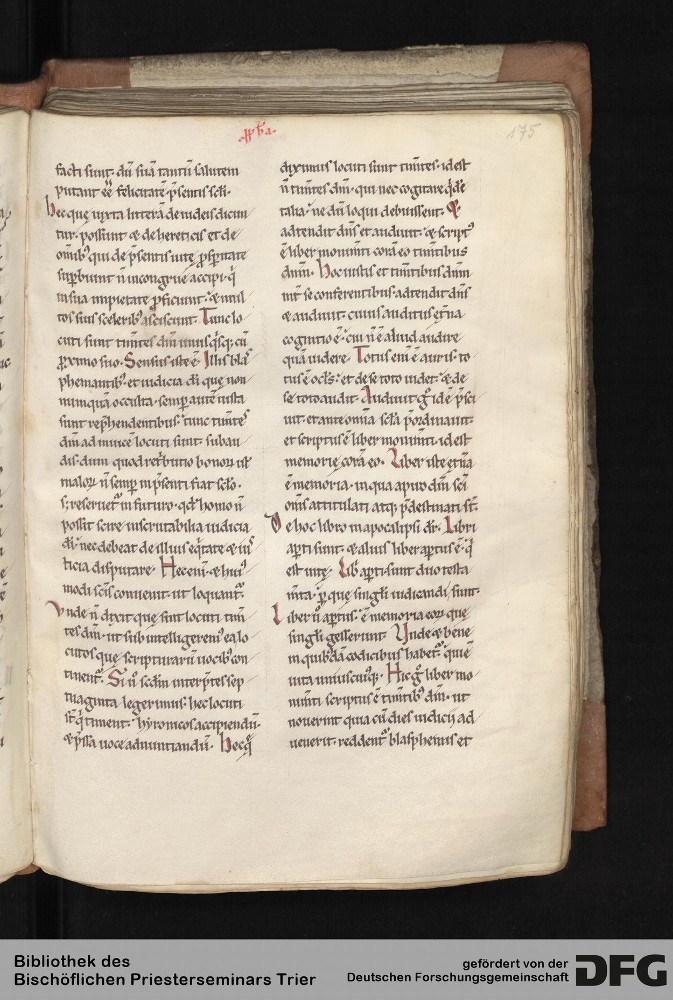 ·pp̄ha·
175
facti sunt· dū suā tantū salutem
putant eē felicitatē p̄sentis scłi·
hec que iuxta litterā de iudeis dicun
tur· possunt & de hereticis et de
omib; qui de p̄sentis uite p̄sp̄itate
sup̄biunt n̄ incongrue accipi· q̄
in sua impietate p̄ficiunt· & mul
tos suis scelerib; asciscunt· Tunc lo
cuti sunt tim̄tes dm̄ unus q̄sq; cū
p̄ximo suo· Sensus iste ē· Illis blas
phemantib; et iudicia di que non
numquā occulta· semp̄ autē iusta
sunt rep̄hendentibus· tunc tim̄tes
dm̄ ad inuicē locuti sunt· subau
dis· dum quod ret̄butio bonoꝝ uł
maloꝝ n̄ semp̄ in p̄senti fiat scło·
s; reseruet̄ in futuro· qd homo n̄
possit scire inscrutabilia iudicia
di· nec debeat de illius eq̄tate & ius
ticia disputare· Hec eni & hui;
modi scis conuenit· ut loquant̄·
Unde n̄ dixit que sint locuti tim̄
tes dm̄· ut subintelligerem; ea lo
cutos que scripturarū uocib; con
tinent̄· Si ū scdm interp̄tes sep
tuaginta legerimus· hec locuti
st̄ q̄ timent· hyronicos accipiendū·
& p̄ssa uoce adnuntiandū· Hec q̄
diximus locuti sunt tim̄tes· id est
n̄ tim̄tes dm̄· qui nec cogitare qdē
talia· ne dū loqui debuissent· &
adtendit dn̄s et audiuit· & script;
ē liber monim̄ti corā eo tim̄tibus
dnm̄· Hoc iustis et tim̄tibus dnm̄
int̄ se conferentibus· adtendit dn̄s
& audiuit· cuius auditus et̄na
cognitio ē· cui n̄ ē aliud audire
quā uidere· Totus eni ē auris· to
tus ē ocłs· et de se toto uidet· & de
se toto audit· Audiuit g̊ id ē p̄sci
uit· et ante omīa scła p̄ordinauit·
et scriptus ē liber monim̄ti· id est
memorie corā eo· Liber iste et̄na
ē memoria· in qua apud dm̄ sci
om̄s attitulati atq; p̄destinati st̄·
De hoc libro in apocalipsi dr̄· Libri
ap̄ti sunt· & alius liber ap̄tus ē· q̄
est uite· Lib̄ ap̄ti· sunt duo testa
m̄ta· p̄ que singłi iudicandi sunt·
Liber ū ap̄tus· ē memoria eoꝝ que
singłi gesserunt· Unde & bene
in quibdā codicibus habet̄· qui ē
uita uniuscui;q;· Hic g̊ liber mo
nim̄ti scriptus ē tim̄tib; dm̄· ut
nouerint quia cū dies iudicij ad
uenerit· reddent̄ blasphemis et
Bibliothek des
Bischöflichen Priesterseminars Trier
gefördert von der
Deutschen Forschungsgemeinschaft
DFG